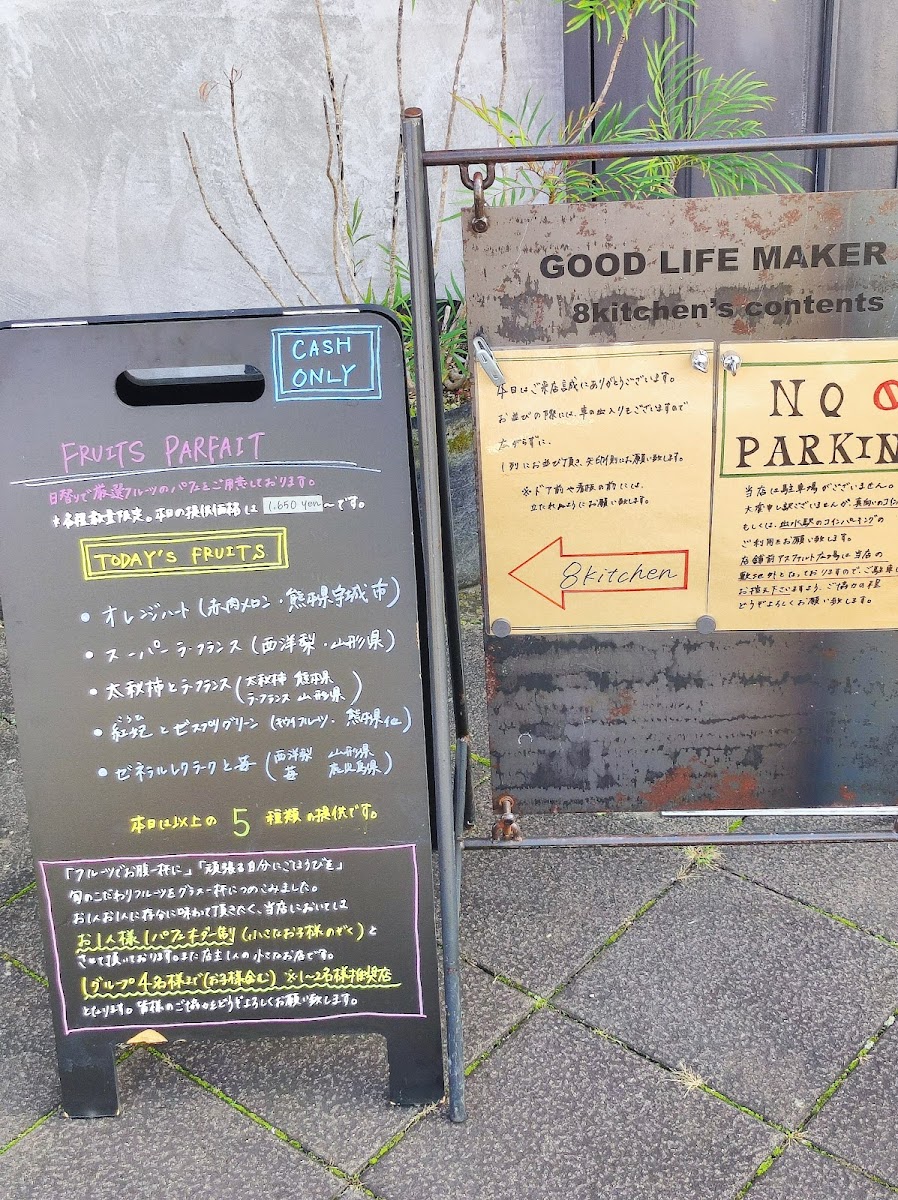 CASH
ONLY
FRUITS PARFAIT
日替りで厳選フルーツのパフェをご用意しております。
※各種数量限定。本日の提供価格は 1.650 yen 〜です。
TODAY'S FRUITS
・オレンジハート(赤肉メロン・熊本県宇城市)
・スーパーラ・フランス(西洋梨・山形県)
・太秋柿とラ・フランス(太秋柿 熊本県
ラ・フランス 山形県)
・紅妃とゼスプリグリーン(キウイフルーツ・熊本県他)
・ゼネラルレクラークと苺(西洋梨 山形県
苺 鹿児島県)
本日は以上の 5 種類の提供です。
「フルーツでお腹一杯に」「頑張る自分にごほうびを」
旬のこだわりフルーツをグラス一杯につめこみました。
お1人お1人に存分に味わって頂きたく、当店においては
お1人様1パフェオーダー制(小さなお子様のぞく)と
させて頂いております。また店主1人の小さなお店です。
1グループ4名様まで(お子様含む) ※1〜2名様推奨店
となります。皆様のご協力をどうぞよろしくお願い致します。
GOOD LIFE MAKER
8kitchen's contents
本日はご来店誠にありがとうございます。
お並びの際には、車の出入りもございますので
広がらずに、
1列にお並び頂き、矢印側にお願い致します。
※ドア前や看板の前には、
立たれぬようにお願い致します。
8kitchen
NO
PARKIN
当店は駐車場がございません。
大変申し訳ございませんが、真向いのコイン
もしくは、出水駅のコインパーキングの
ご利用をお願い致します。
店舗前アスファルト広場は当店の
敷地外となっておりますので、ご駐車
お控え下さいますよう、ご協力の程
どうぞよろしくお願い致します。